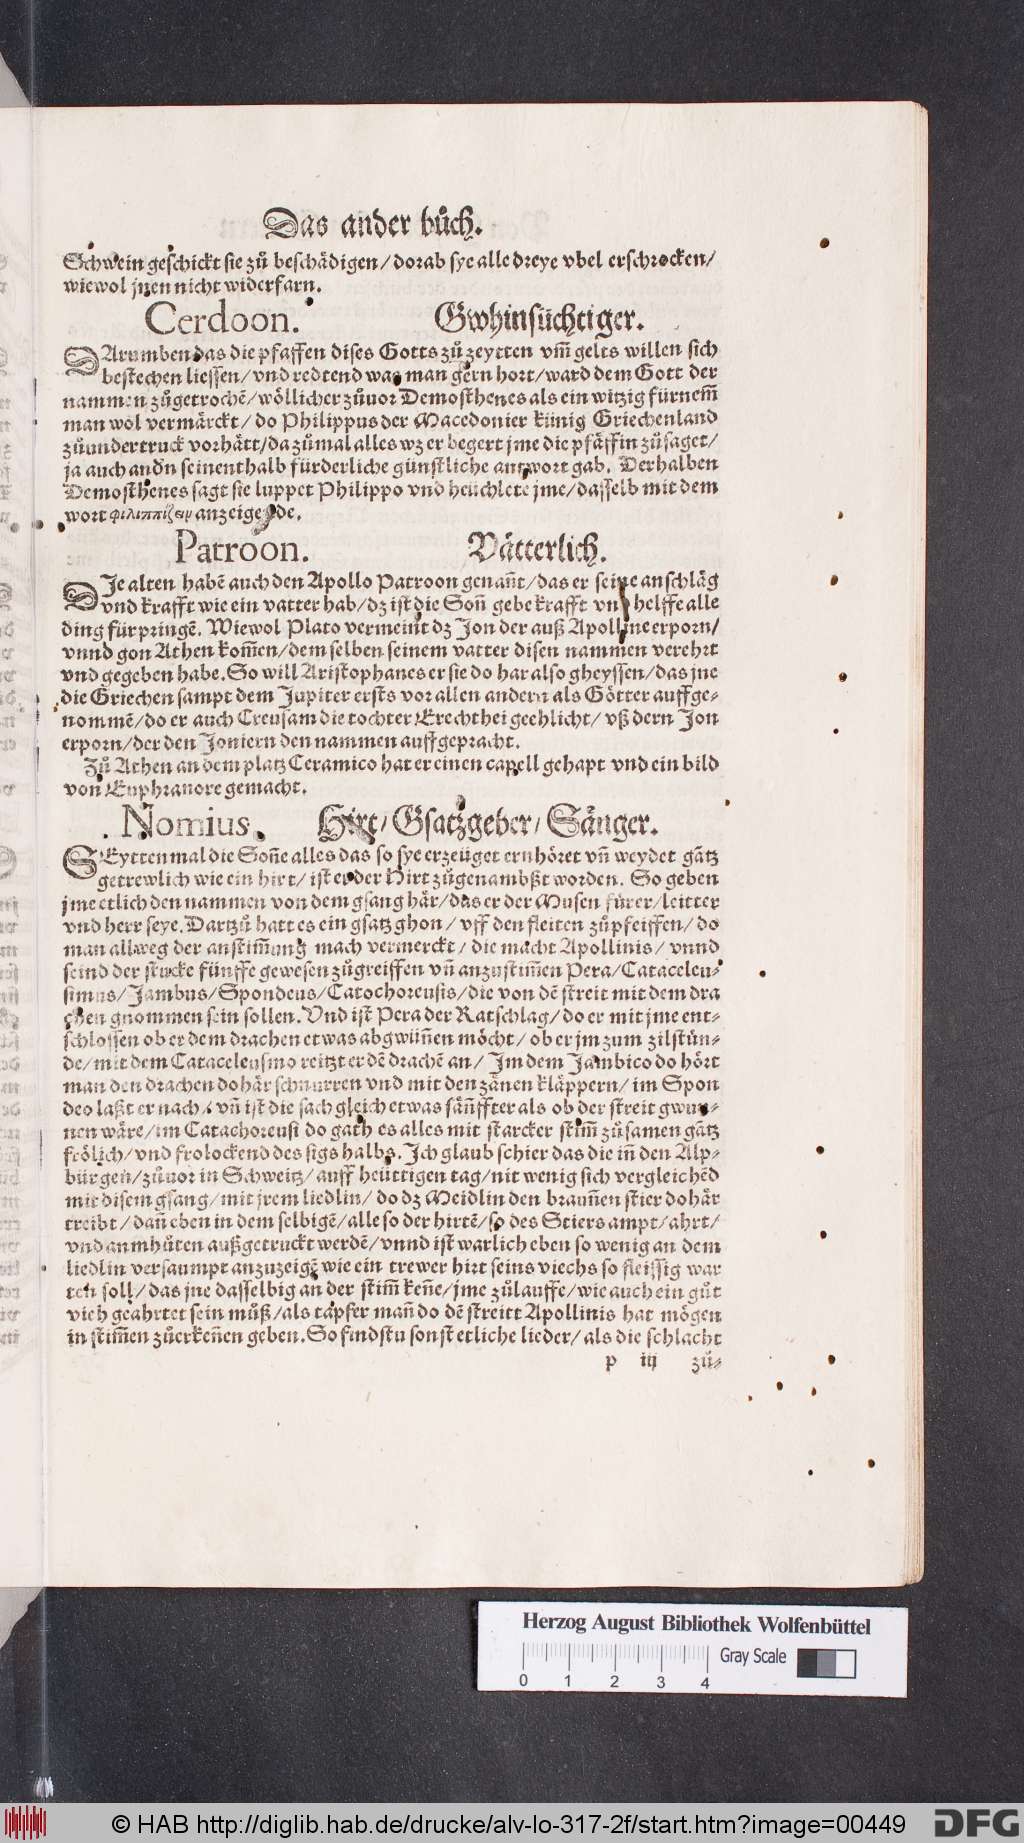 Das ander bůch.
Schwein geschickt sie zů beschädigen/ dorab sye alle dreye vbel erschrocken/
wiewol jnen nicht widerfarn.
Cerdoon. Gwhinsüchtiger.
DArumben das die pfaffen dises Gotts zů zeytten vm̃ gelts willen sich
bestechen liessen/ vnd redtend was man gern hort/ ward dem Gott der
nammen zůgetrochẽ/ wöllicher zůuor Demosthenes als ein witzig fürnem̃
man wol vermärckt/ do Philippus der Macedonier künig Griechenland
zůundertruck vorhätt/ da zůmal alles wz er begert jme die pfäffin zůsaget/
ja auch andn seinenthalb fürderliche günstliche antwort gab. Derhalben
Demosthenes sagt sie luppet Philippo vnd heüchlete jme/ dasselb mit dem
wort φιλιππίζειν anzeigende.
Patroon. Vätterlich.
DJe alten habẽ auch den Apollo Patroon genañt/ das er seine anschläg
vnd krafft wie ein vatter hab/ dz ist die Soñ gebe krafft vnd helffe alle
ding fürpringẽ. Wiewol Plato vermeint dz Jon der auß Apolline erporn/
vnnd gon Athen kom̃en/ dem selben seinem vatter disen nammen verehrt
vnd gegeben habe. So will Aristophanes er sie do har also gheyssen/ das jne
die Griechen sampt dem Jupiter ersts vor allen andern als Götter auffge-
nommẽ/ do er auch Creusam die tochter Erechthei geehlicht/ vß dern Jon
erporn/ der den Joniern den nammen auffgepracht.
Zů Athen an dem platz Ceramico hat er einen capell gehapt vnd ein bild
von Euphranore gemacht.
Nomius. Hirt/ Gsatzgeber/ Sänger.
SEyttenmal die Soñe alles das so sye erzeüget ernhöret vñ weydet gätz
getrewlich wie ein hirt/ ist er der Hirt zůgenambßt worden. So geben
jme etlich den nammen von dem gsang här/ das er der Musen fürer/ leitter
vnd herr seye. Dartzů hatt es ein gsatz ghon/ vff den fleiten zůpfeiffen/ do
man allweg der anstim̃ung mach vermerckt/ die macht Apollinis/ vnnd
seind der stucke fünffe gewesen zůgreiffen vñ anzustim̃en Pera/ Cataceleu-
simus/ Jambus/ Spondeus/ Catochoreusis/ die von dẽ streit mit dem dra
chen gnommen sein sollen. Vnd ist Pera der Ratschlag/ do er mit jme ent-
schlossen ob er dem drachen etwas abgwüñen möcht/ ob er jm zum zil stün-
de/ mit dem Cataceleusmo reitzt er dẽ drachẽ an/ Jm dem Jambico do hört
man den drachen do här schnurren vnd mit den zänen kläppern/ im Spon
deo laßt er nach/ vñ ist die sach gleich etwas säñffter als ob der streit gwun-
nen wäre/ im Catachoreusi do gath es alles mit starcker stim̃ zůsamen gätz
frölich/ vnd frolockend des sigs halbs. Jch glaub schier das die iñ den Alp-
bürgen/ zůuor in Schweitz/ auff heüttigen tag/ nit wenig sich vergleichẽd
mit disem gsang/ mit jrem liedlin/ do dz Meidlin den brauñen stier do här
treibt/ dañ eben in dem selbigẽ/ alle so der hirtẽ/ so des Stiers ampt/ ahrt/
vnd anmhůten außgetruckt werdẽ/ vnnd ist warlich eben so wenig an dem
liedlin versaumpt anzuzeigẽ wie ein trewer hirt seins viechs so fleissig war
ten soll/ das jne dasselbig an der stim̃ keñe/ jme zůlauffe/ wie auch ein gůt
vich geahrtet sein můß/ als tapfer mañ do dẽ streitt Apollinis hat mögen
in stim̃en zůerkeñen geben. So findstu sonst etliche lieder/ als die schlacht
p iij zů-
Herzog August Bibliothek Wolfenbüttel
Gray Scale
0 1 2 3 4
© HAB http://diglib.hab.de/drucke/alv-lo-317-2f/start.htm?image=00449 DFG